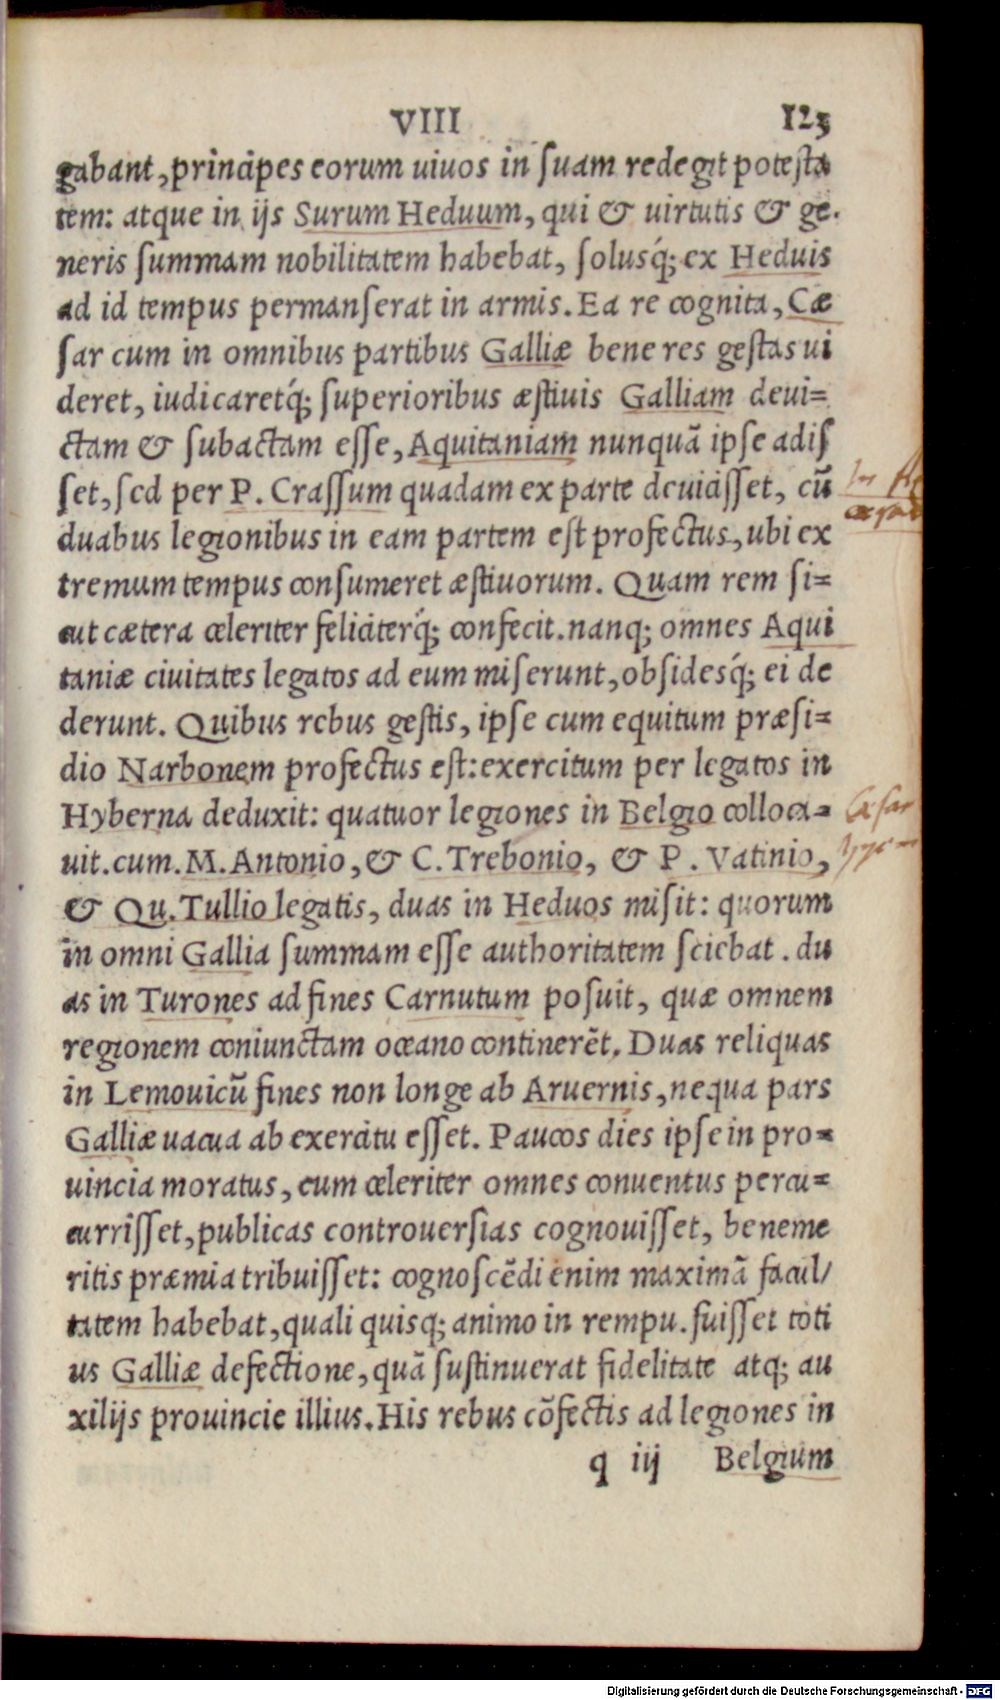 VIII 123
gabant, principes eorum uiuos in ſuam redegit poteſta
tem: atque in ijs Surum Heduum, qui & uirtutis & ge.
neris ſummam nobilitatem habebat, ſolusq́; ex Heduis
ad id tempus permanſerat in armis. Ea re cognita, Cæ
ſar cum in omnibus partibus Galliæ bene res geſtas ui
deret, iudicaretq́; ſuperioribus æſtiuis Galliam deui=
ctam & ſubactam eſſe, Aquitaniam nunquā ipſe adiſ
ſet, ſed per P. Craſſum quadam ex parte deuiciſſet, cū
duabus legionibus in eam partem eſt profectus, ubi ex
tremum tempus conſumeret æſtiuorum. Quam rem ſi=
cut cætera celeriter feliciterq́; confecit. nanq; omnes Aqui
taniæ ciuitates legatos ad eum miſerunt, obſidesq́; ei de
derunt. Quibus rebus geſtis, ipſe cum equitum præſi=
dio Narbonem profectus eſt: exercitum per legatos in
Hyberna deduxit: quatuor legiones in Belgio colloca=
uit. cum. M. Antonio, & C. Trebonio, & P. Vatinio,
& Qu. Tullio legatis, duas in Heduos miſit: quorum
in omni Gallia ſummam eſſe authoritatem ſciebat. du
as in Turones ad fines Carnutum poſuit, quæ omnem
regionem coniunctam oceano continerēt. Duas reliquas
in Lemouicū fines non longe ab Aruernis, ne qua pars
Galliæ uacua ab exercitu eſſet. Paucos dies ipſe in pro=
uincia moratus, cum celeriter omnes conuentus percu=
curriſſet, publicas controuerſias cognouiſſet, beneme
ritis præmia tribuiſſet: cognoſcēdi enim maximā facul/
tatem habebat, quali quisq; animo in rempu. fuiſſet toti
us Galliæ defectione, quā ſuſtinuerat fidelitate atq; au
xilijs prouincie illius. His rebus cōfectis ad legiones in
q iij Belgium
Cæſar
Digitalisierung gefördert durch die Deutsche Forschungsgemeinschaft - DFG